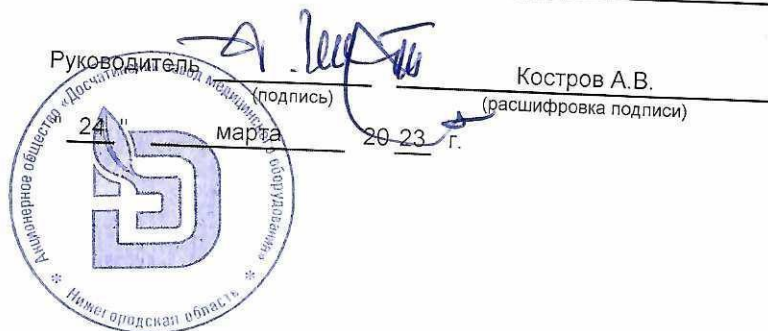 Руководитель
Костров А.В.
(подпись)
(расшифровка подписи)
24 " марта 20 23 г.
Акционерное общество «Досчатинский завод медицинского оборудования»
* Нижегородская область *